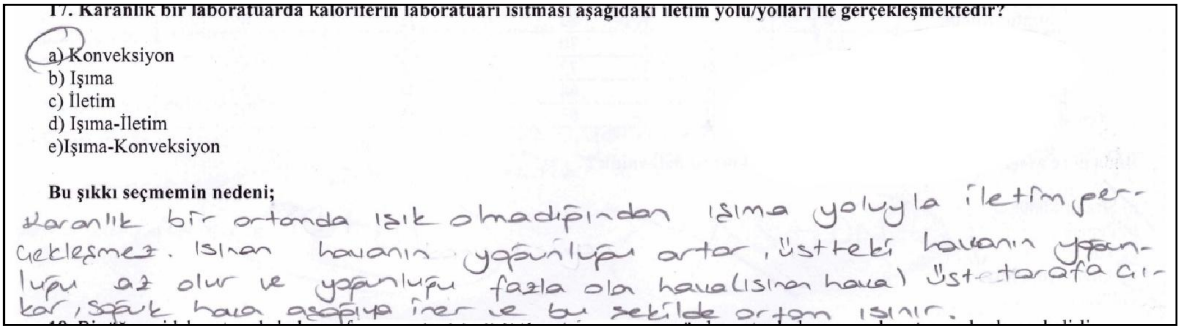 17. Karanlık bir laboratuarda kaloriferin laboratuarı ısıtması aşağıdaki iletim yolu/yolları ile gerçekleşmektedir?
a) Konveksiyon
b) Işıma
c) İletim
d) Işıma-İletim
e)Işıma-Konveksiyon
Bu şıkkı seçmemin nedeni;
Karanlık bir ortamda ışık olmadığından ışıma yoluyla iletim ger-
çekleşmez. Isınan havanın yoğunluğu artar, üstteki havanın yoğun-
luğu az olur ve yoğunluğu fazla olan hava(ısınan hava) üst tarafa çı-
kar, soğuk hava aşağıya iner ve bu şekilde ortam ısınır.